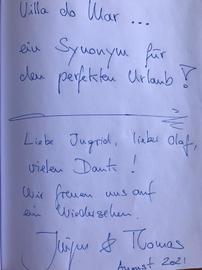 Villa do Mar ...
ein Synonym für
den perfekten Urlaub!
Liebe Ingrid, lieber Olaf,
vielen Dank!
Wir freuen uns auf
ein Wiedersehen.
Jürgen & Thomas
August 2021